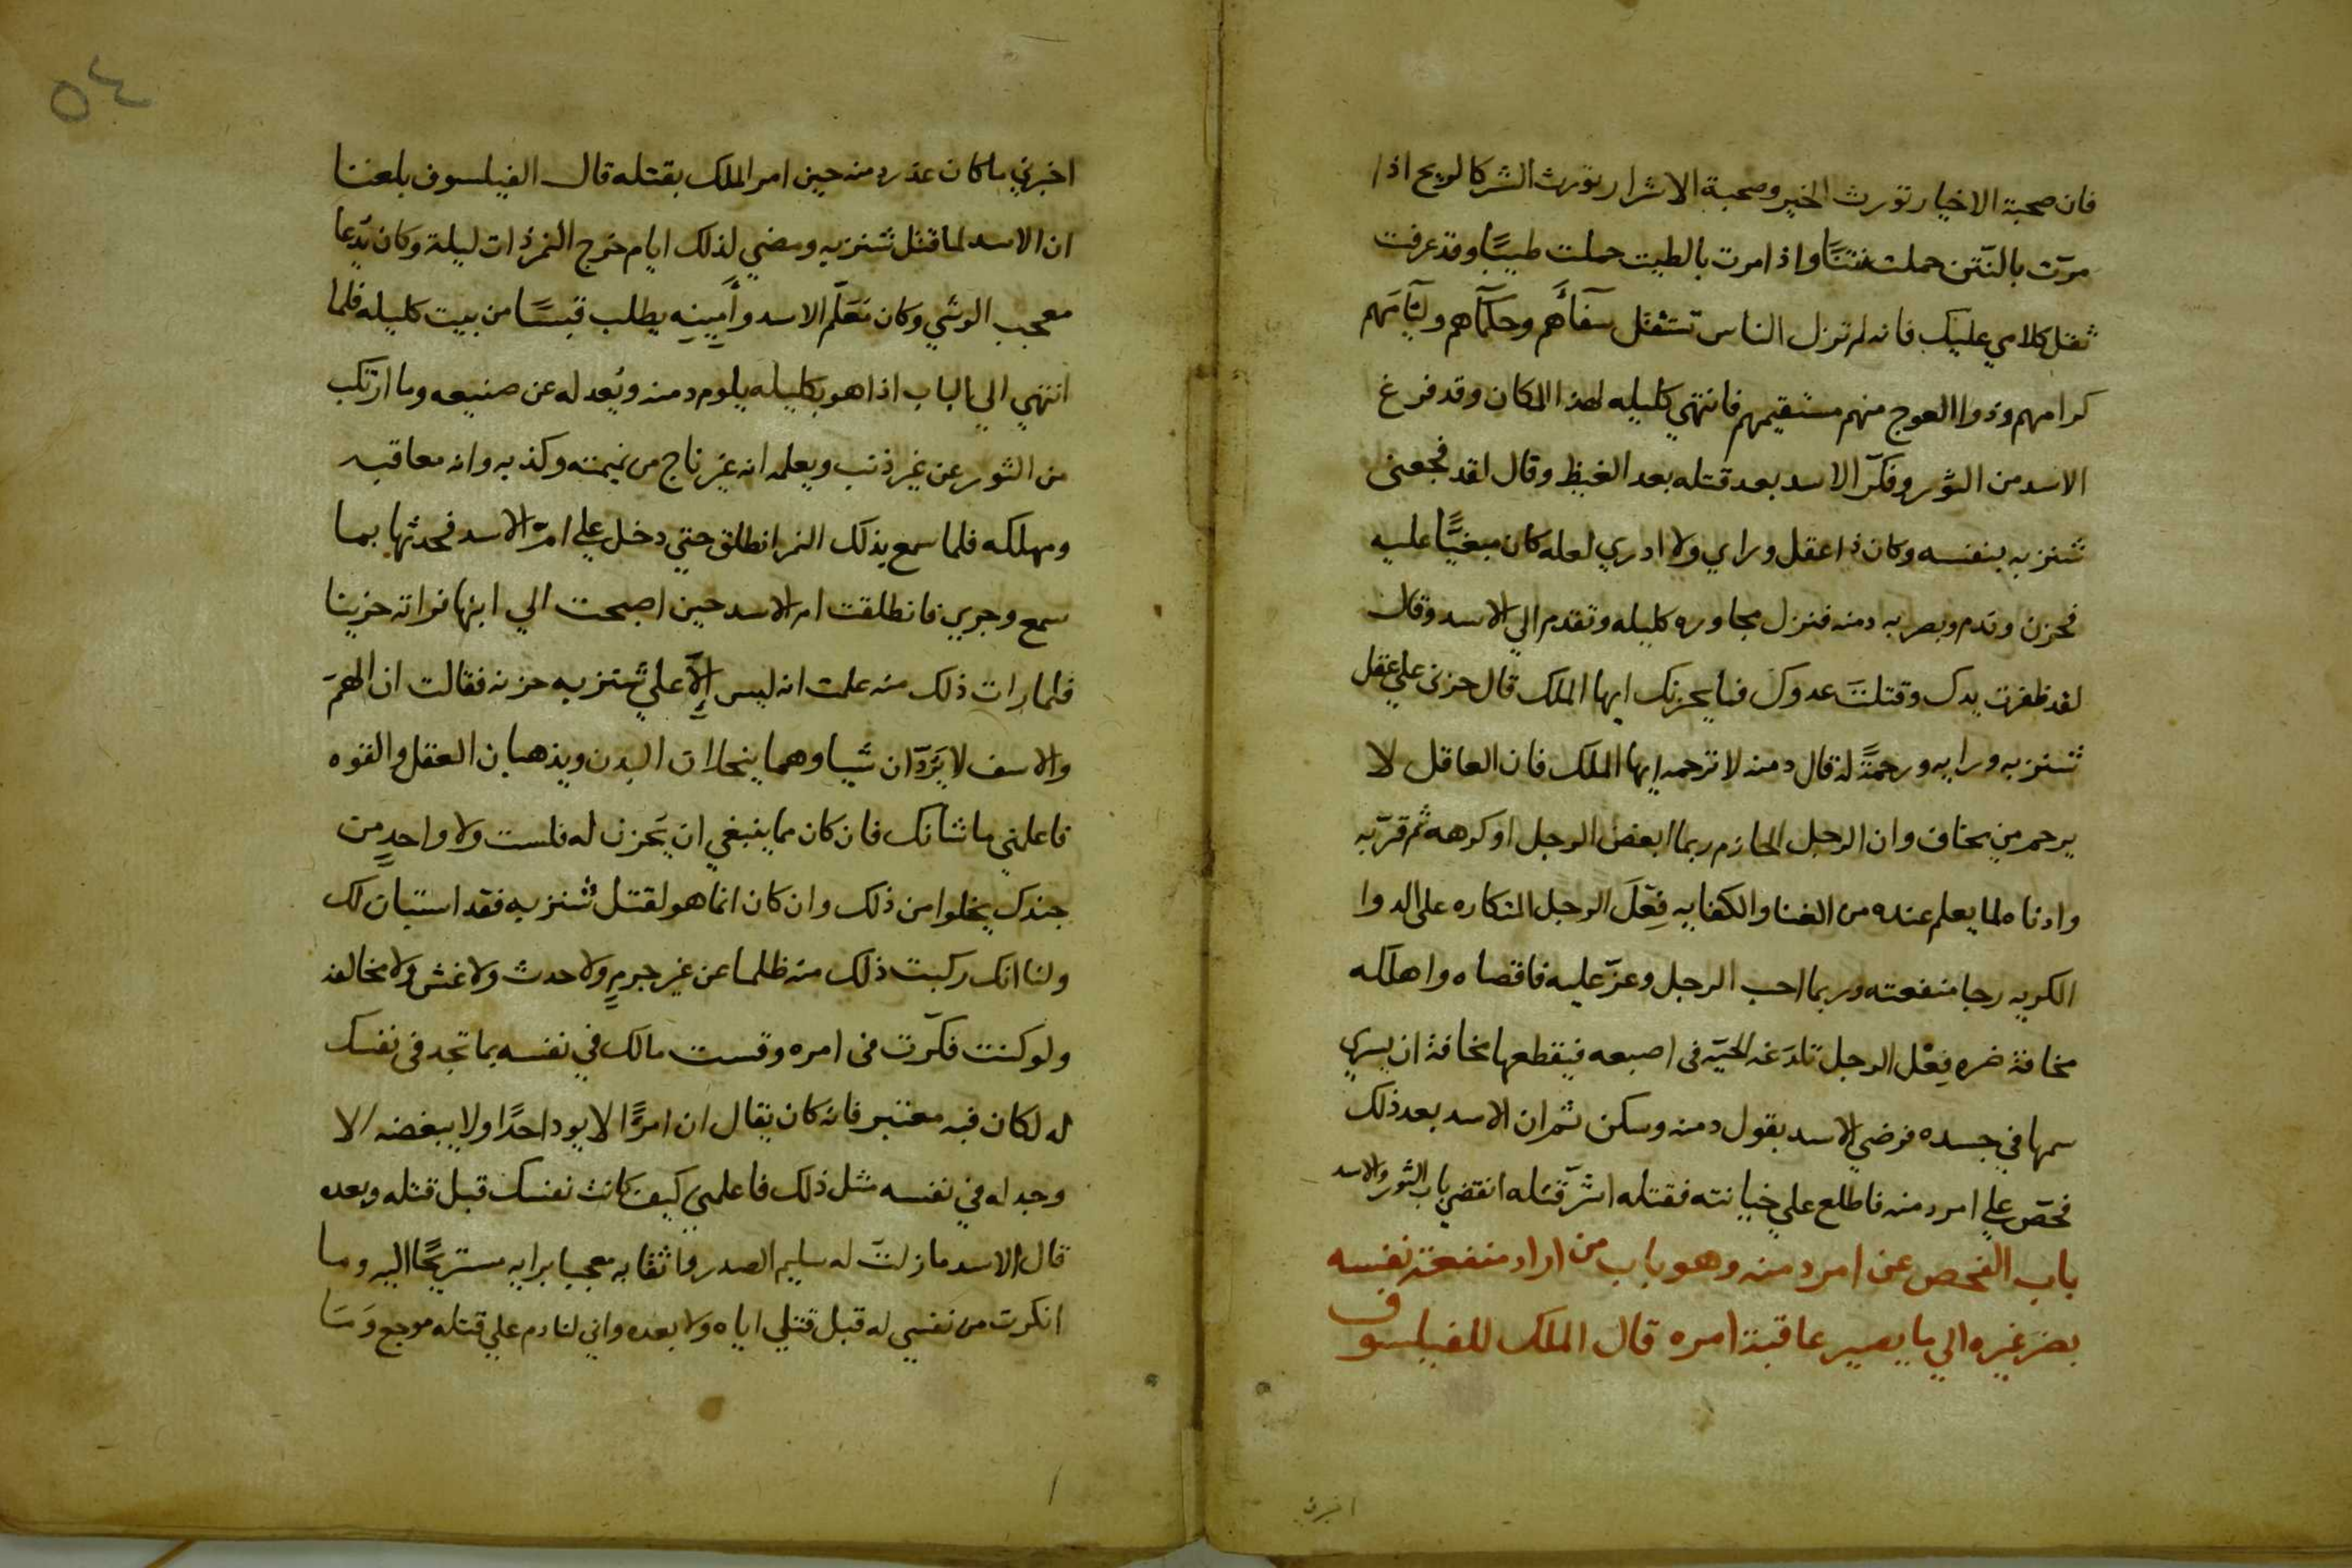 فان صحبة الاخيار تورث الخير وصحبة الاشرار تورث الشر كالريح اذا
مرّت بالنّتن حملت نتنًا واذا مرت بالطيب حملت طيبًا وقد عرفت
ثقل كلامي عليك فانه لم تزل الناس تستثقل سفآءهم وحكمآهم ولئآمهم
كرامهم وذوا العوج منهم مستقيمهم فانتهي كليله لهذا المكان وقد فرغ
الاسد من الثور وفكّر الاسد بعد قتله بعد الغيظ وقال لقد فجعنى
شنزبه بنفسه وكان ذا عقل وراي ولا ادري لعله كان مبغيًّا عليه
فحزن وندم وبصر به دمنه فنزل مجاوره كليله وتقدم الي الاسد وقال
لقد ظفرت يدك وقتلت عدوك فما يحزنك ايها الملك قال حزنى علي عقل
شنزبه ورايه ورحمةً له قال دمنه لا ترحمه ايها الملك فان العاقل لا
يرحم من يخاف وان الرجل الحازم ربما ابغض الرجل او كرهه ثم قرّبه
وادناه لما يعلم عنده من الغنا والكفايه فِعْلَ الرجل المتكاره على الدوا
الكريه رجا منفعته وربما احب الرجل وعزّ عليه فاقصاه واهلكه
مخافة ضره فِعْل الرجل تلدَغه الحيّه فى اصبعه فيقطعها مخافة ان يسري
سمها في جسده فرضي الاسد بقول دمنه وسكن ثم ان الاسد بعد ذلك
فحّص علي امر دمنه فاطلع علي خيانته فقتله اشرّ قتله انقضي باب الثور والاسد
باب الفحص عن امر دمنه وهو باب من اراد منفعة نفسه
بضر غيره الي ما يصير عاقبة امره قال الملك للفيلسوف
اخبرني
٥٤
اخبرني ما كان عذر دمنه حين امر الملك بقتله قال الفيلسوف بلغنا
ان الاسد لما قتل شنزبه ومضي لذلك ايام خرج النمر ذات ليلة وكان يُدعا
معجب الوشي وكان مَعلّم الاسد وأَمِينِه يطلب قبسًا من بيت كليله فلما
انتهي الي الباب اذا هو بكليله يلوم دمنه ويُعدله عن صنيعه وما ارتكب
من الثور عن غير ذنب ويعلمه انه غير ناج من نميمته وكذبه وانه معاقبه
ومهلكه فلما سمع بذلك النمر انطلق حتي دخل علي امّ الاسد فحدثها بما
سمع وجري فانطلقت ام الاسد حين اصبحت الي ابنها فراته حزينا
فلما رات ذلك منه علمت انه ليس إلّا علي شنزبه حزنه فقالت ان الهمّ
والاسف لا يَردّان شيا وهما ينحلان البدن ويذهبان العقل والقوه
فاعلمني ما شانك فان كان مما ينبغي ان يَحزن له فلست ولا واحدٍ من
جندك يخلوا من ذلك وان كان انما هو لقتل شنزبه فقد استبان لك
ولنا انك ركبت ذلك منه ظلما عن غير جرمٍ ولا حدث ولا غش ولا مخالفه
ولو كنت فكّرت فى امره وقست مالك في نفسه بما تجد فى نفسك
له لكان فيه معتبر فانه كان يقال ان امرًا لا يود احدًا ولا يبغضه الا
وجد له في نفسه مثل ذلك فاعلمني كيف كانت نفسك قبل قتله وبعده
قال الاسد ما زلت له سليم الصدر واثقا به معجبا برايه مستريحًا اليه وما
انكرت من نفسي له قبل قتلي اياه ولا بعده واني لنادم علي قتله موجع وَمَا